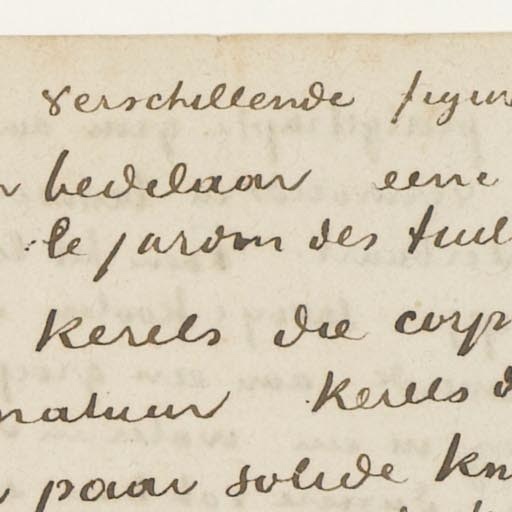 verschillende figur
bedelaar eene
le jardin des tuil
kerels die corp
natuur kerels d
paar solide kn